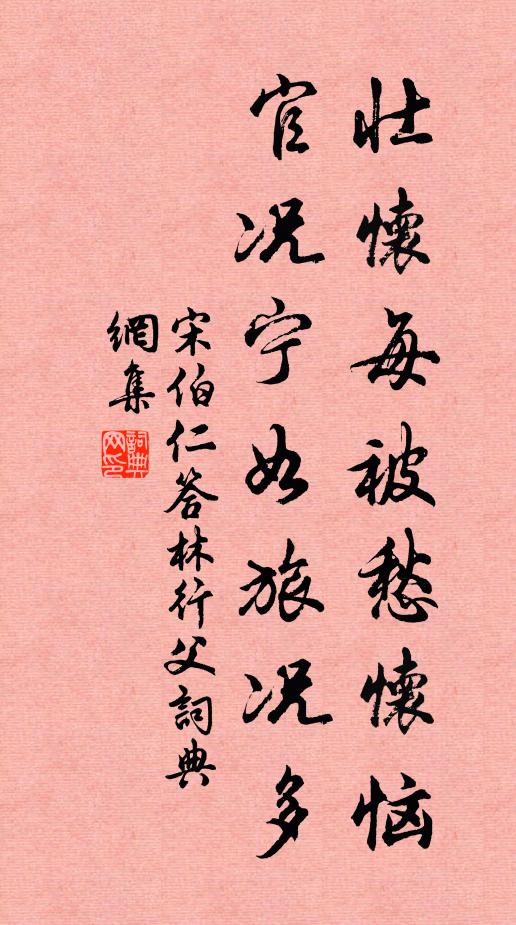 壮懷每被愁懷恼
官况宁如旅况多
宋伯仁答林行父詞典
網集
詞典网印